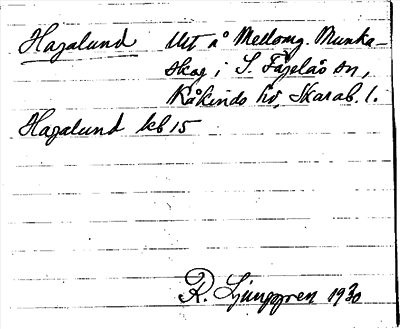 Hagalund Ut å Mellomg. Munka-
skog i S. Fågelås sn,
Kåkinds hd, Skarab. l.
Hagalund kb 15
R. Ljunggren 1930